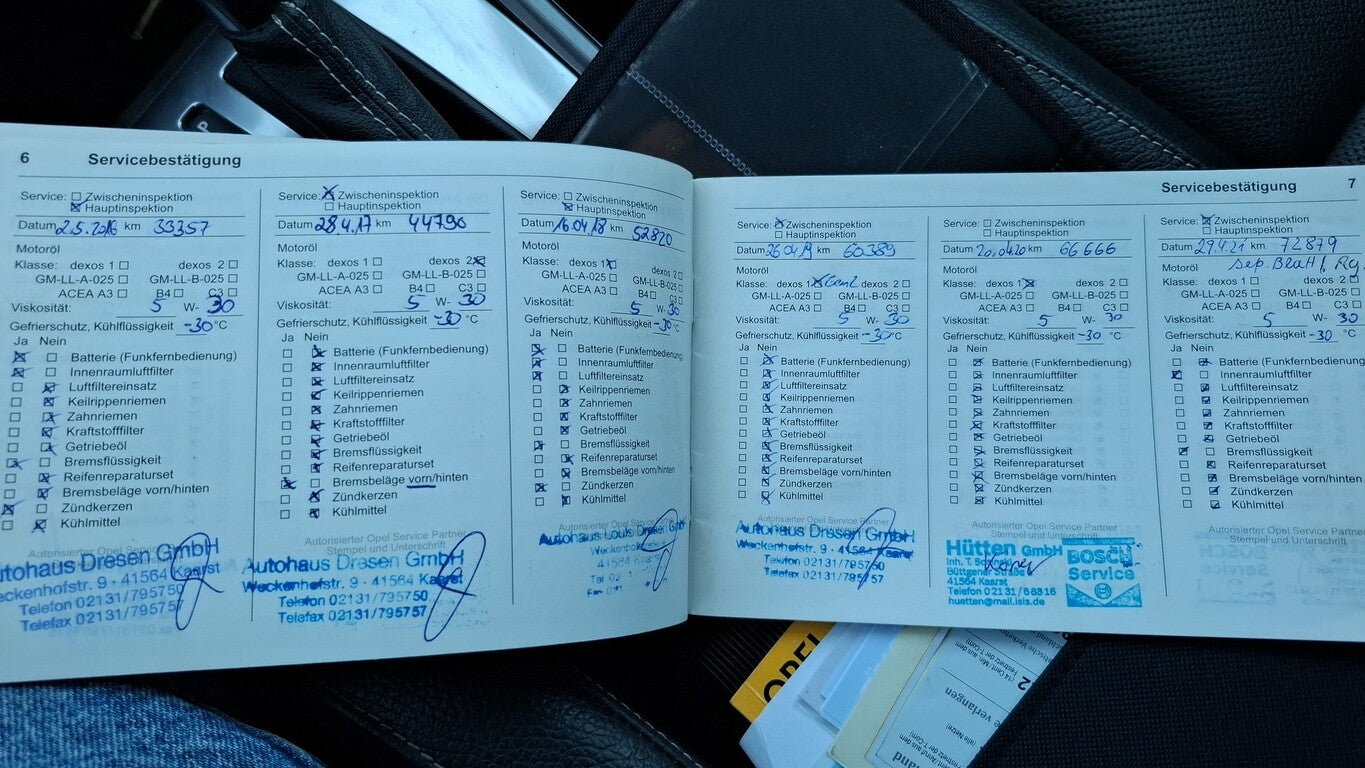 6 Servicebestätigung
Service: Zwischeninspektion
Hauptinspektion
Datum 2.5.2016 km 33357
Motoröl
Klasse: dexos 1 dexos 2
GM-LL-A-025 GM-LL-B-025
ACEA A3 B4 C3
Viskosität: 5 W- 30
Gefrierschutz, Kühlflüssigkeit -30 °C
Ja Nein
Batterie (Funkfernbedienung)
Innenraumluftfilter
Luftfiltereinsatz
Keilrippenriemen
Zahnriemen
Kraftstofffilter
Getriebeöl
Bremsflüssigkeit
Reifenreparaturset
Bremsbeläge vorn/hinten
Zündkerzen
Kühlmittel
Autorisierter Opel Service
utohaus Dresen GmbH
eckenhofstr. 9 - 41564 Kaarst
Telefon 02131/795750
Telefax 02131/795757
Service: Zwischeninspektion
Hauptinspektion
Datum 28.4.17 km 44790
Motoröl
Klasse: dexos 1 dexos 2
GM-LL-A-025 GM-LL-B-025
ACEA A3 B4 C3
Viskosität: 5 W- 30
Gefrierschutz, Kühlflüssigkeit -30 °C
Ja Nein
Batterie (Funkfernbedienung)
Innenraumluftfilter
Luftfiltereinsatz
Keilrippenriemen
Zahnriemen
Kraftstofffilter
Getriebeöl
Bremsflüssigkeit
Reifenreparaturset
Bremsbeläge vorn/hinten
Zündkerzen
Kühlmittel
Autorisierter Opel Service Partner
Stempel und Unterschrift
Autohaus Dresen GmbH
Weckenhofstr. 9 - 41564 Kaarst
Telefon 02131/795750
Telefax 02131/795757
Service: Zwischeninspektion
Hauptinspektion
Datum 16.04.18 km 52820
Motoröl
Klasse: dexos 1 dexos 2
GM-LL-A-025 GM-LL-B-025
ACEA A3 B4 C3
Viskosität: 5 W- 30
Gefrierschutz, Kühlflüssigkeit -30 °C
Ja Nein
Batterie (Funkfernbedienung)
Innenraumluftfilter
Luftfiltereinsatz
Keilrippenriemen
Zahnriemen
Kraftstofffilter
Getriebeöl
Bremsflüssigkeit
Reifenreparaturset
Bremsbeläge vorn/hinten
Zündkerzen
Kühlmittel
Autorisierter Opel Service
Autohaus Louis Dresen GmbH
Servicebestätigung 7
Service: Zwischeninspektion
Hauptinspektion
Datum 26.04.19 km 60.389
Motoröl
Klasse: dexos 1 dexos 2
GM-LL-A-025 GM-LL-B-025
ACEA A3 B4 C3
Viskosität: 5 W- 30
Gefrierschutz, Kühlflüssigkeit -30 °C
Ja Nein
Batterie (Funkfernbedienung)
Innenraumluftfilter
Luftfiltereinsatz
Keilrippenriemen
Zahnriemen
Kraftstofffilter
Getriebeöl
Bremsflüssigkeit
Reifenreparaturset
Bremsbeläge vorn/hinten
Zündkerzen
Kühlmittel
Autorisierter Opel Service Partner
Autohaus Dresen GmbH
Weckenhofstr. 9 - 41564 Kaarst
Telefon 02131/795750
Telefax 02131/795757
Service: Zwischeninspektion
Hauptinspektion
Datum 20.04.20 km 66666
Motoröl
Klasse: dexos 1 dexos 2
GM-LL-A-025 GM-LL-B-025
ACEA A3 B4 C3
Viskosität: 5 W- 30
Gefrierschutz, Kühlflüssigkeit -30 °C
Ja Nein
Batterie (Funkfernbedienung)
Innenraumluftfilter
Luftfiltereinsatz
Keilrippenriemen
Zahnriemen
Kraftstofffilter
Getriebeöl
Bremsflüssigkeit
Reifenreparaturset
Bremsbeläge vorn/hinten
Zündkerzen
Kühlmittel
Autorisierter Opel Service Partner
Stempel und Unterschrift
Hütten GmbH
Inh. T.
Büttgener Straße
41564 Kaarst
Telefon 02131/66816
huetten@mail.isis.de
BOSCH
Service
Service: Zwischeninspektion
Hauptinspektion
Datum 29.4.21 km 72879
Motoröl sep. Blatt / Rg.
Klasse: dexos 1 dexos 2
GM-LL-A-025 GM-LL-B-025
ACEA A3 B4 C3
Viskosität: 5 W- 30
Gefrierschutz, Kühlflüssigkeit -30 °C
Ja Nein
Batterie (Funkfernbedienung)
Innenraumluftfilter
Luftfiltereinsatz
Keilrippenriemen
Zahnriemen
Kraftstofffilter
Getriebeöl
Bremsflüssigkeit
Reifenreparaturset
Bremsbeläge vorn/hinten
Zündkerzen
Kühlmittel
Autorisierter Opel Service Partner
Stempel und Unterschrift
P
OPEL
verlangen